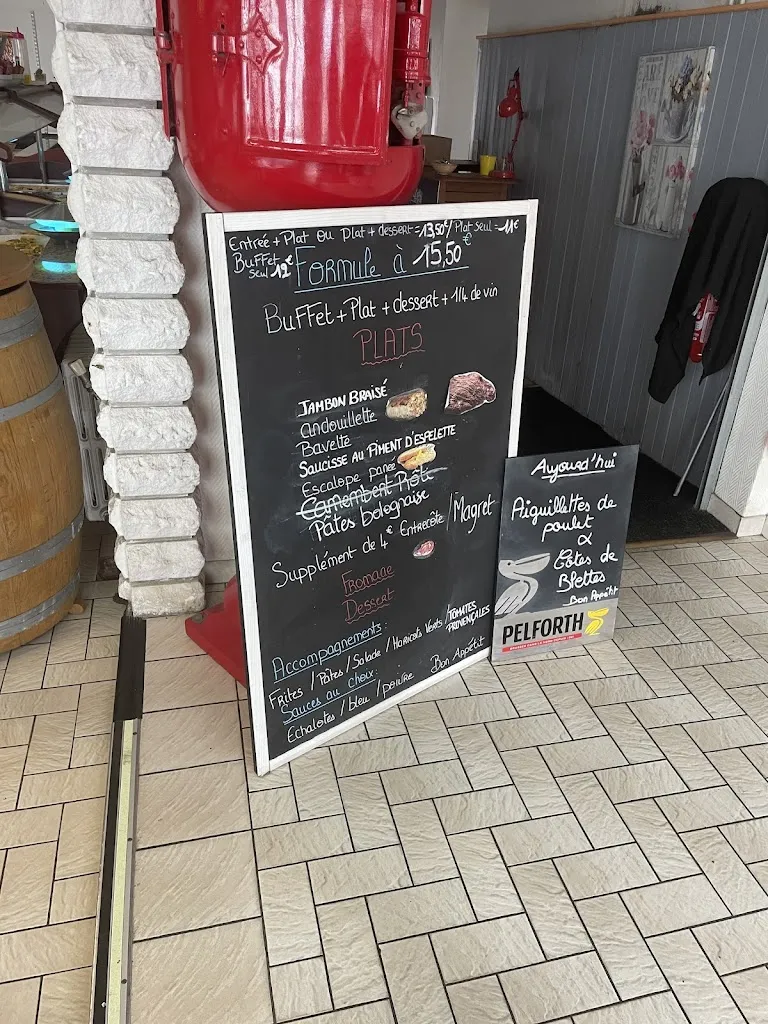 Entrée + Plat ou plat + dessert = 13,50€ / Plat seul = 11€
Buffet seul 12€
Formule à 15,50€
Buffet + Plat + dessert + 1/4 de vin
PLATS
JAMBON BRAISÉ
Andouillette
Bavette
SAUCISSE AU PIMENT D'ESPELETTE
Escalope panée
Camembert Rôti
Pâtes bolognaise
Supplément de 4€ Entrecôte / Magret
Fromage
Dessert
Accompagnements :
Frites / Pâtes / Salade / Haricots Verts / TOMATES PROVENÇALES
Sauces au choix :
Echalotes / bleu / poivre Bon Appétit
Aujourd'hui
Aiguillettes de
poulet
&
Côtes de
Blettes
Bon Appétit
PELFORTH